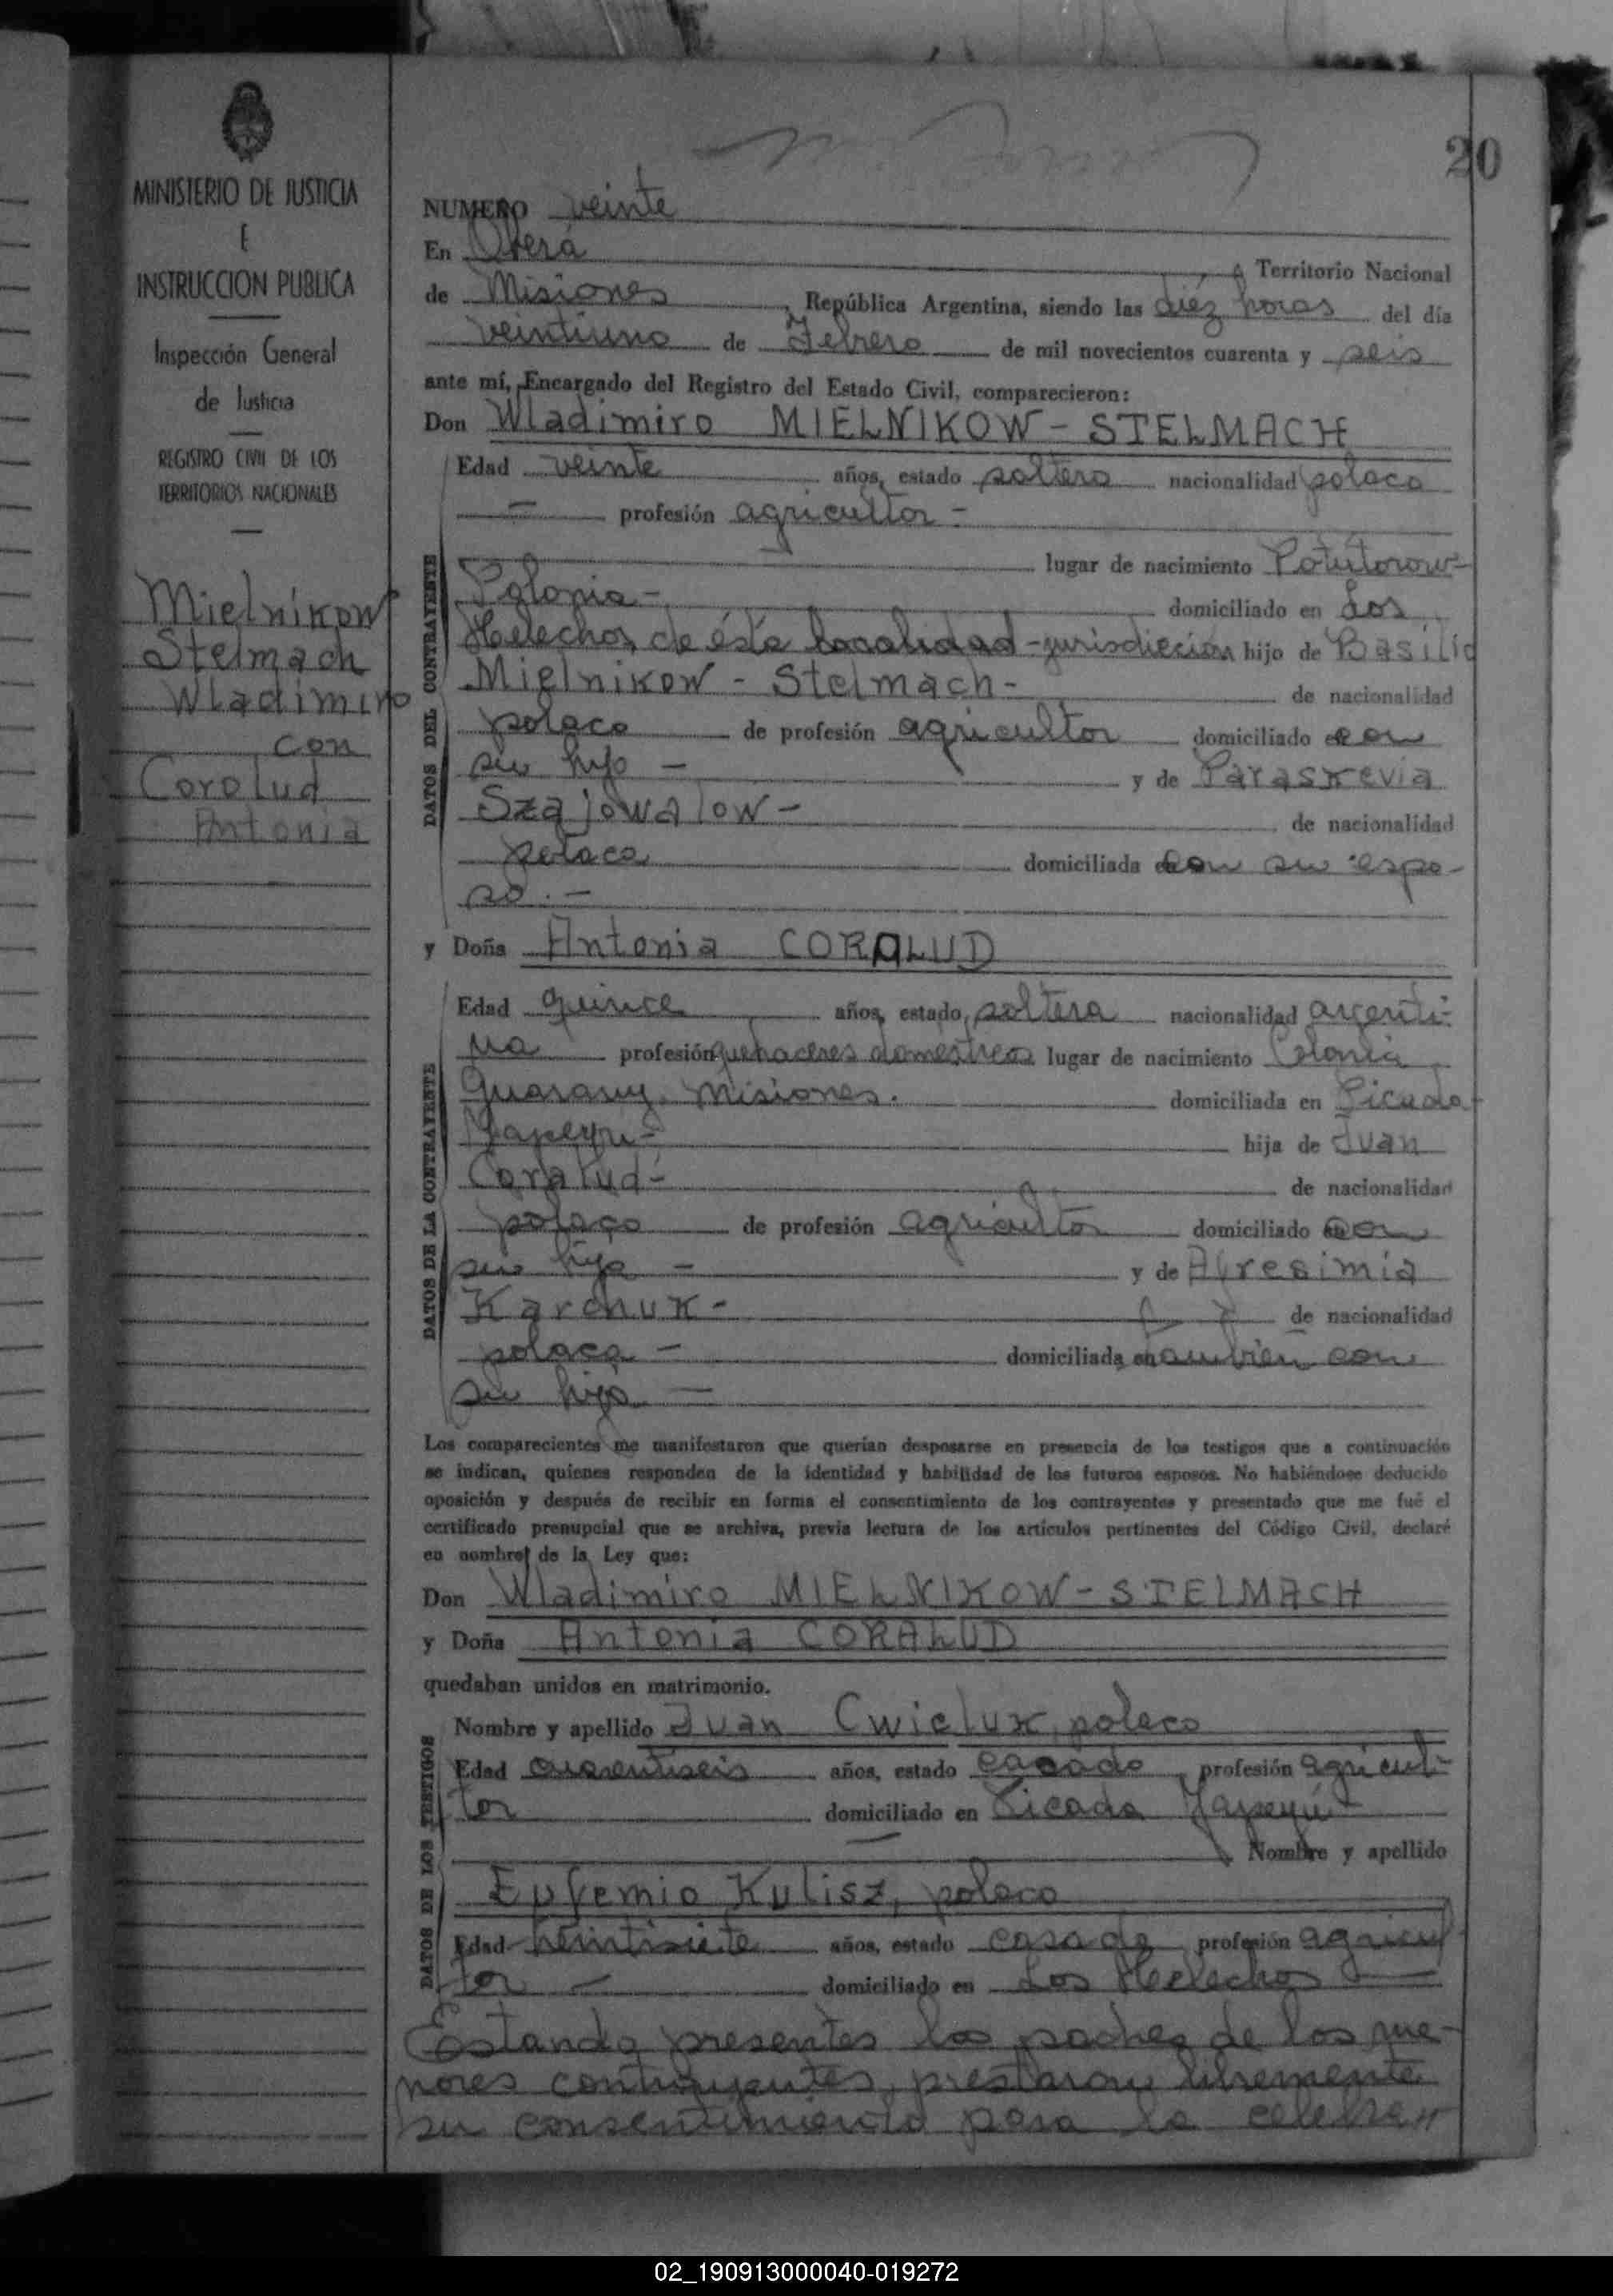 20
MINISTERIO DE JUSTICIA
E
INSTRUCCION PUBLICA
Inspección General
de Justicia
REGISTRO CIVIL DE LOS
TERRITORIOS NACIONALES
Mielnikow
Stelmach
Wladimiro
con
Corolud
Antonia
NUMERO veinte
En Oberá, Territorio Nacional
de Misiones, República Argentina, siendo las diéz horas del día
veintiuno de Febrero de mil novecientos cuarenta y seis
ante mí, Encargado del Registro del Estado Civil, comparecieron:
Don Wladimiro MIELNIKOW - STELMACH
DATOS DEL CONTRAYENTE
Edad veinte años, estado soltero nacionalidad polaca
- profesión agricultor -
lugar de nacimiento Potutorow-
Polonia - domiciliado en Los
Helechos de ésta localidad - jurisdicción hijo de Basilio
Mielnikow - Stelmach - de nacionalidad
polaco de profesión agricultor domiciliado con
su hijo - y de Paraskevia
Szajowalow - de nacionalidad
polaca domiciliada con su espo-
so.-
y Doña Antonia CORALUD
DATOS DE LA CONTRAYENTE
Edad quince años, estado soltera nacionalidad argenti-
na profesión quehaceres domesticos lugar de nacimiento Colonia
Guarany, Misiones. domiciliada en Picada
Yapeyu- hija de Juan
Coralud- de nacionalidad
polaco de profesión agricultor domiciliado con
su hija - y de Afresimia
Karchuk - de nacionalidad
polaca - domiciliada tambien con
su hija -
Los comparecientes me manifestaron que querían desposarse en presencia de los testigos que a continuación
se indican, quienes responden de la identidad y habilidad de los futuros esposos. No habiéndose deducido
oposición y después de recibir en forma el consentimiento de los contrayentes y presentado que me fué el
certificado prenupcial que se archiva, previa lectura de los artículos pertinentes del Código Civil, declaré
en nombre de la Ley que:
Don Wladimiro MIELNIKOW - STELMACH
y Doña Antonia CORALUD
quedaban unidos en matrimonio.
DATOS DE LOS TESTIGOS
Nombre y apellido Juan Cwieluk, polaco
Edad cuarentiseis años, estado casado, profesión agricul-
tor domiciliado en Picada Yapeyú -
Nombre y apellido
Eufemio Kulisz, polaco
Edad treintisiete años, estado casado, profesión agricul
tor - domiciliado en Los Helechos -
Estando presentes los padres de los me-
nores contrayentes, prestaron libremente
su consentimiento para la celebra
02_190913000040-019272